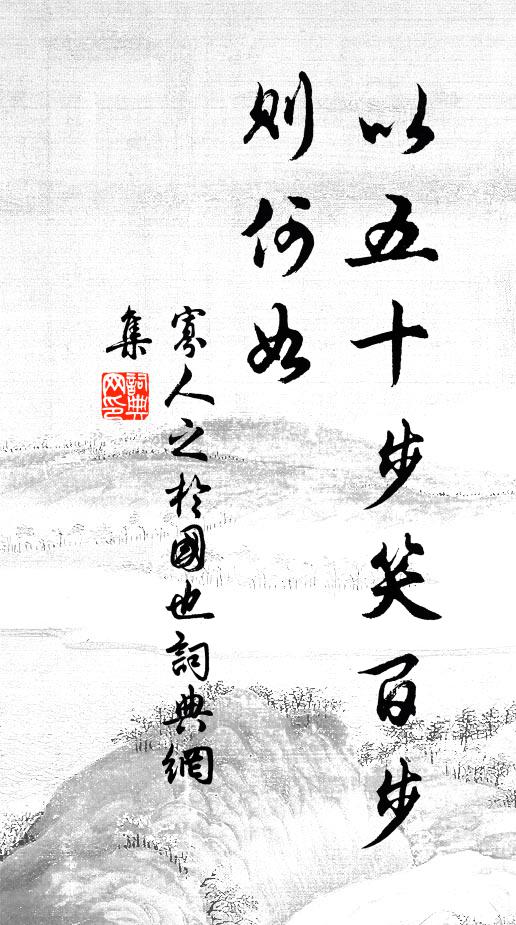 以五十步笑百步
則何如
寡人之於國也詞典網
集
詞典
网印